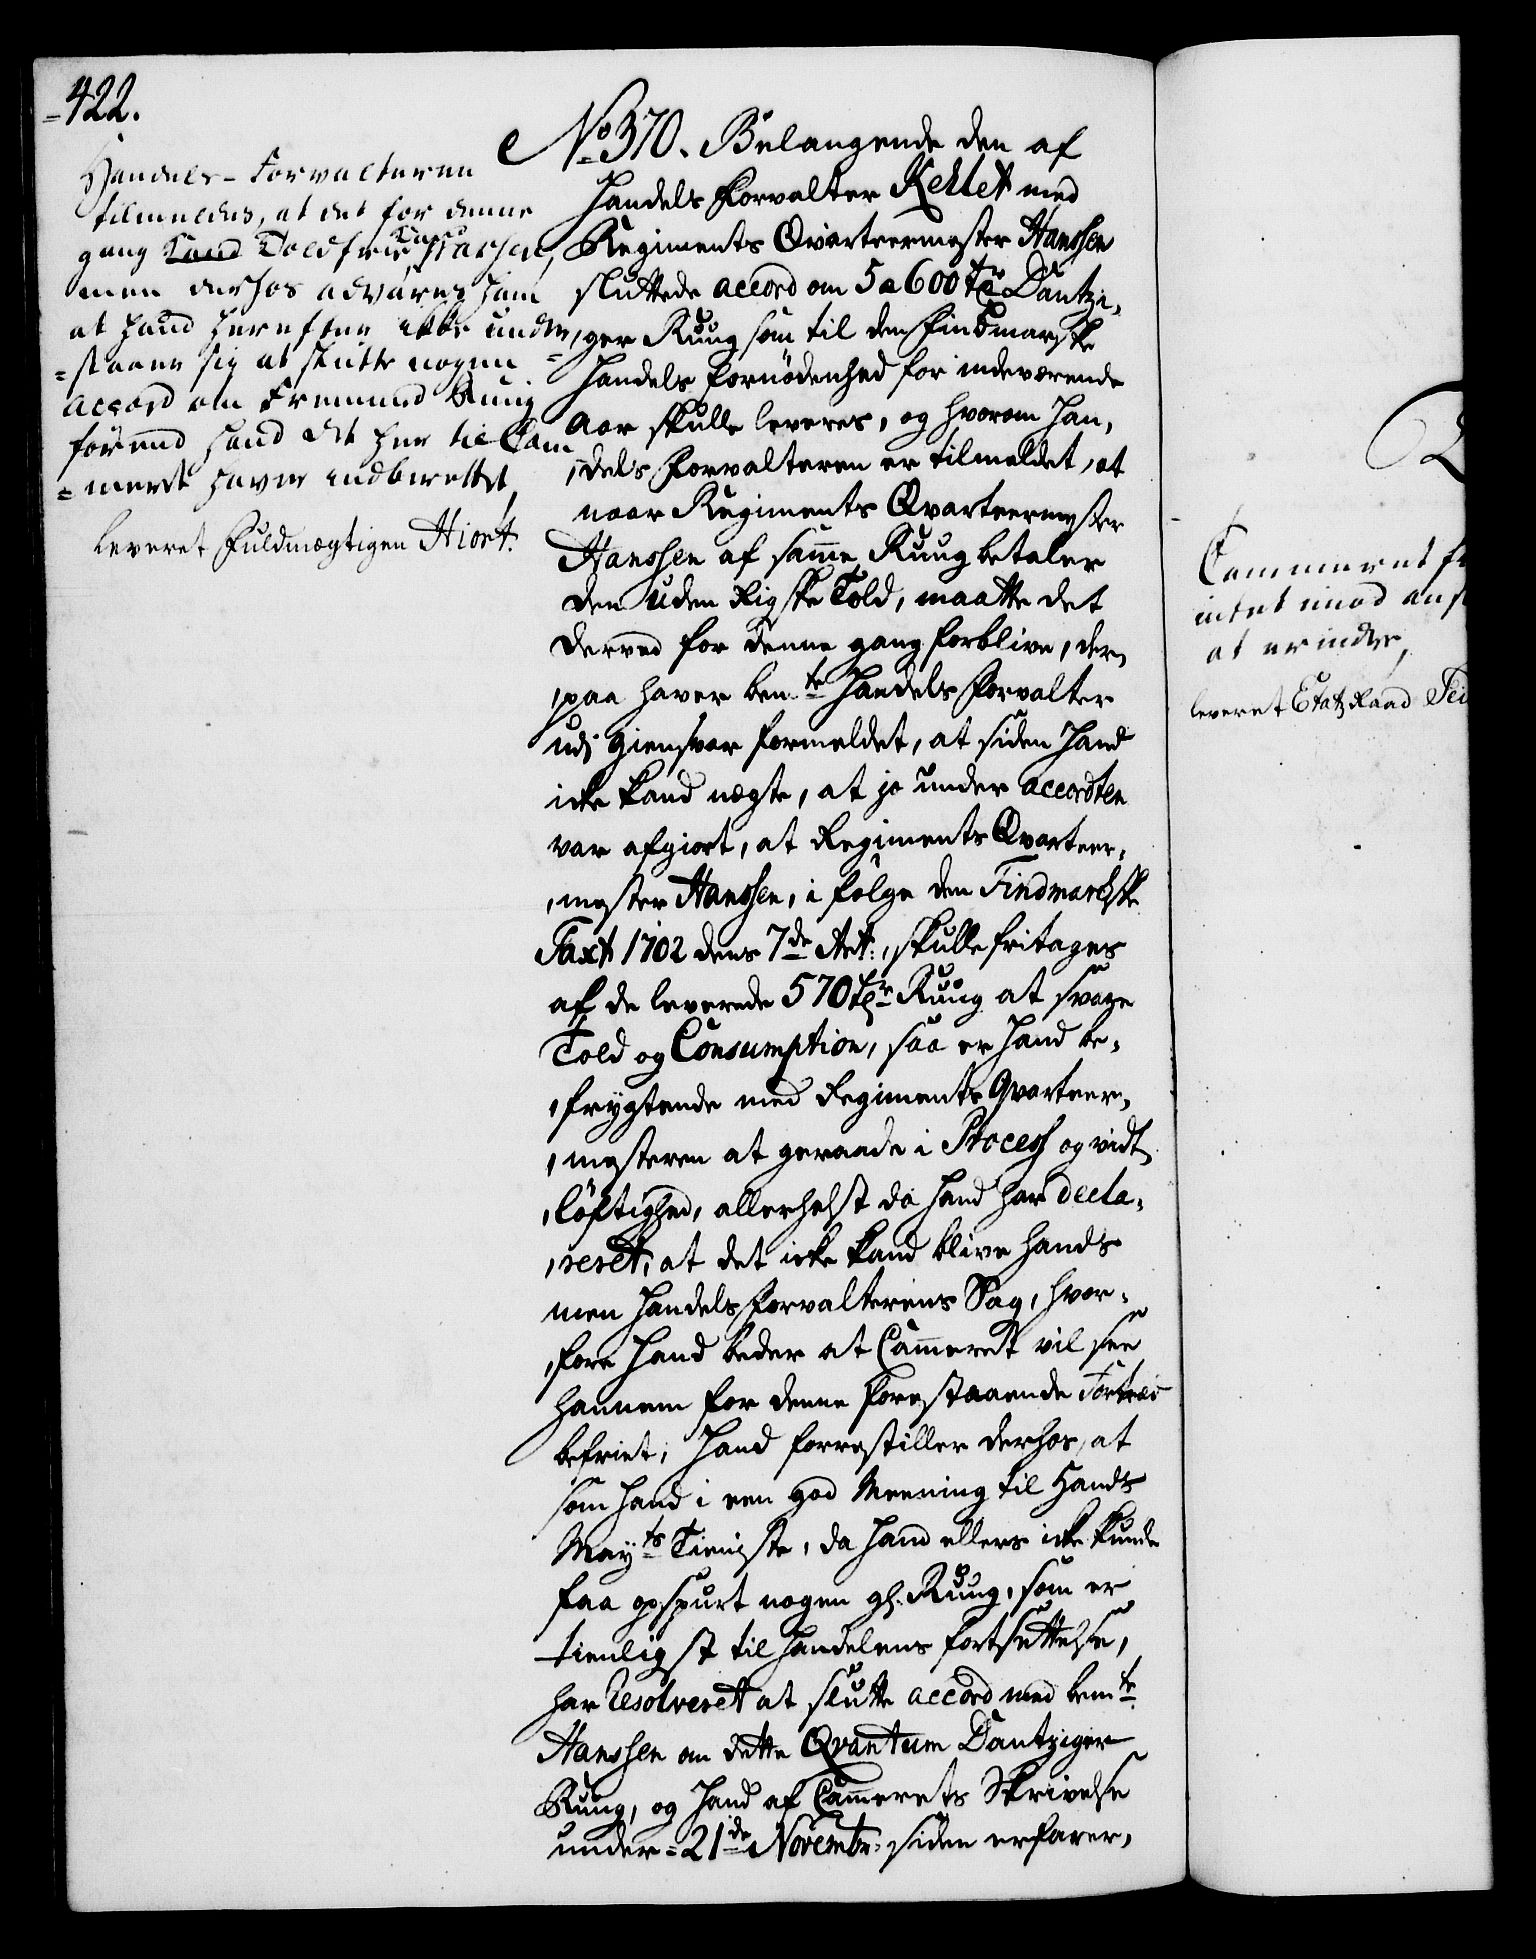 -422.
Handels-Forvalteren
tilmeldes, at det for denne
gang Toldfrie passere,
men derhos advares ham
at hand herefter ikke under,
=staaer sig at slutte nogen
accord om Fremmed Ruug
förend hand det her til Cam
=meret haver indberettet,
leveret Fuldmægtigen Hiort.
No 370. Belangende den af
Handels Forvalter Kellet med
Regiments Qvarteermester Hanssen
sluttede accord om 5 a 600 tr Dantzi,
,ger Ruug som til den Findmarske
Handels fornödenhed for indeværende
Aar skulle leveres, og hvorom Han,
,dels Forvalteren er tilmeldet, at
naar Regiments Qvarteermester
Hanssen af samme Ruug betaler
den uden Rigske Told, maatte det
derved for denne gang forblive, der,
,paa haver bemte Handels Forvalter
udj Giensvar formeldet, at siden hand
icke kand nægte, at jo under accordten
var afgiort, at Regiments Qvarteer,
,mester Hanssen, i fölge den Findmarchske
Taxt 1702 dens 7de Art:, skulle fritages
af de leverede 570 tr Ruug at svare
Told og Consumption, saa er hand be,
,frygtende med Regiments Qvarteer,
,mesteren at geraade i Process og vidt
,löftighed, allerhelst da hand har decla,
,reret, at det icke kand blive hands
men Handels Forvalterens Sag, hvor,
,fore hand beder at Cammeret vil see
hannem for denne forestaaende Fortræd
befriet; Hand forrestiller derhos, at
som hand i een god Meening til Hands
Mayts Tieniste, da hand ellers icke kunde
faa opspurt nogen gl. Ruug, som er
tienligst til Handelens fortsettelse,
har Resolveret at slutte accord med bemte
Hanssen om dette Qvantum Dantziger
Ruug, og hand af Cammerets Skrivelse
under = 21de Novembr: siden erfarer,
Cammeret
intet imod
at erindre,
leveret Etatz Raad